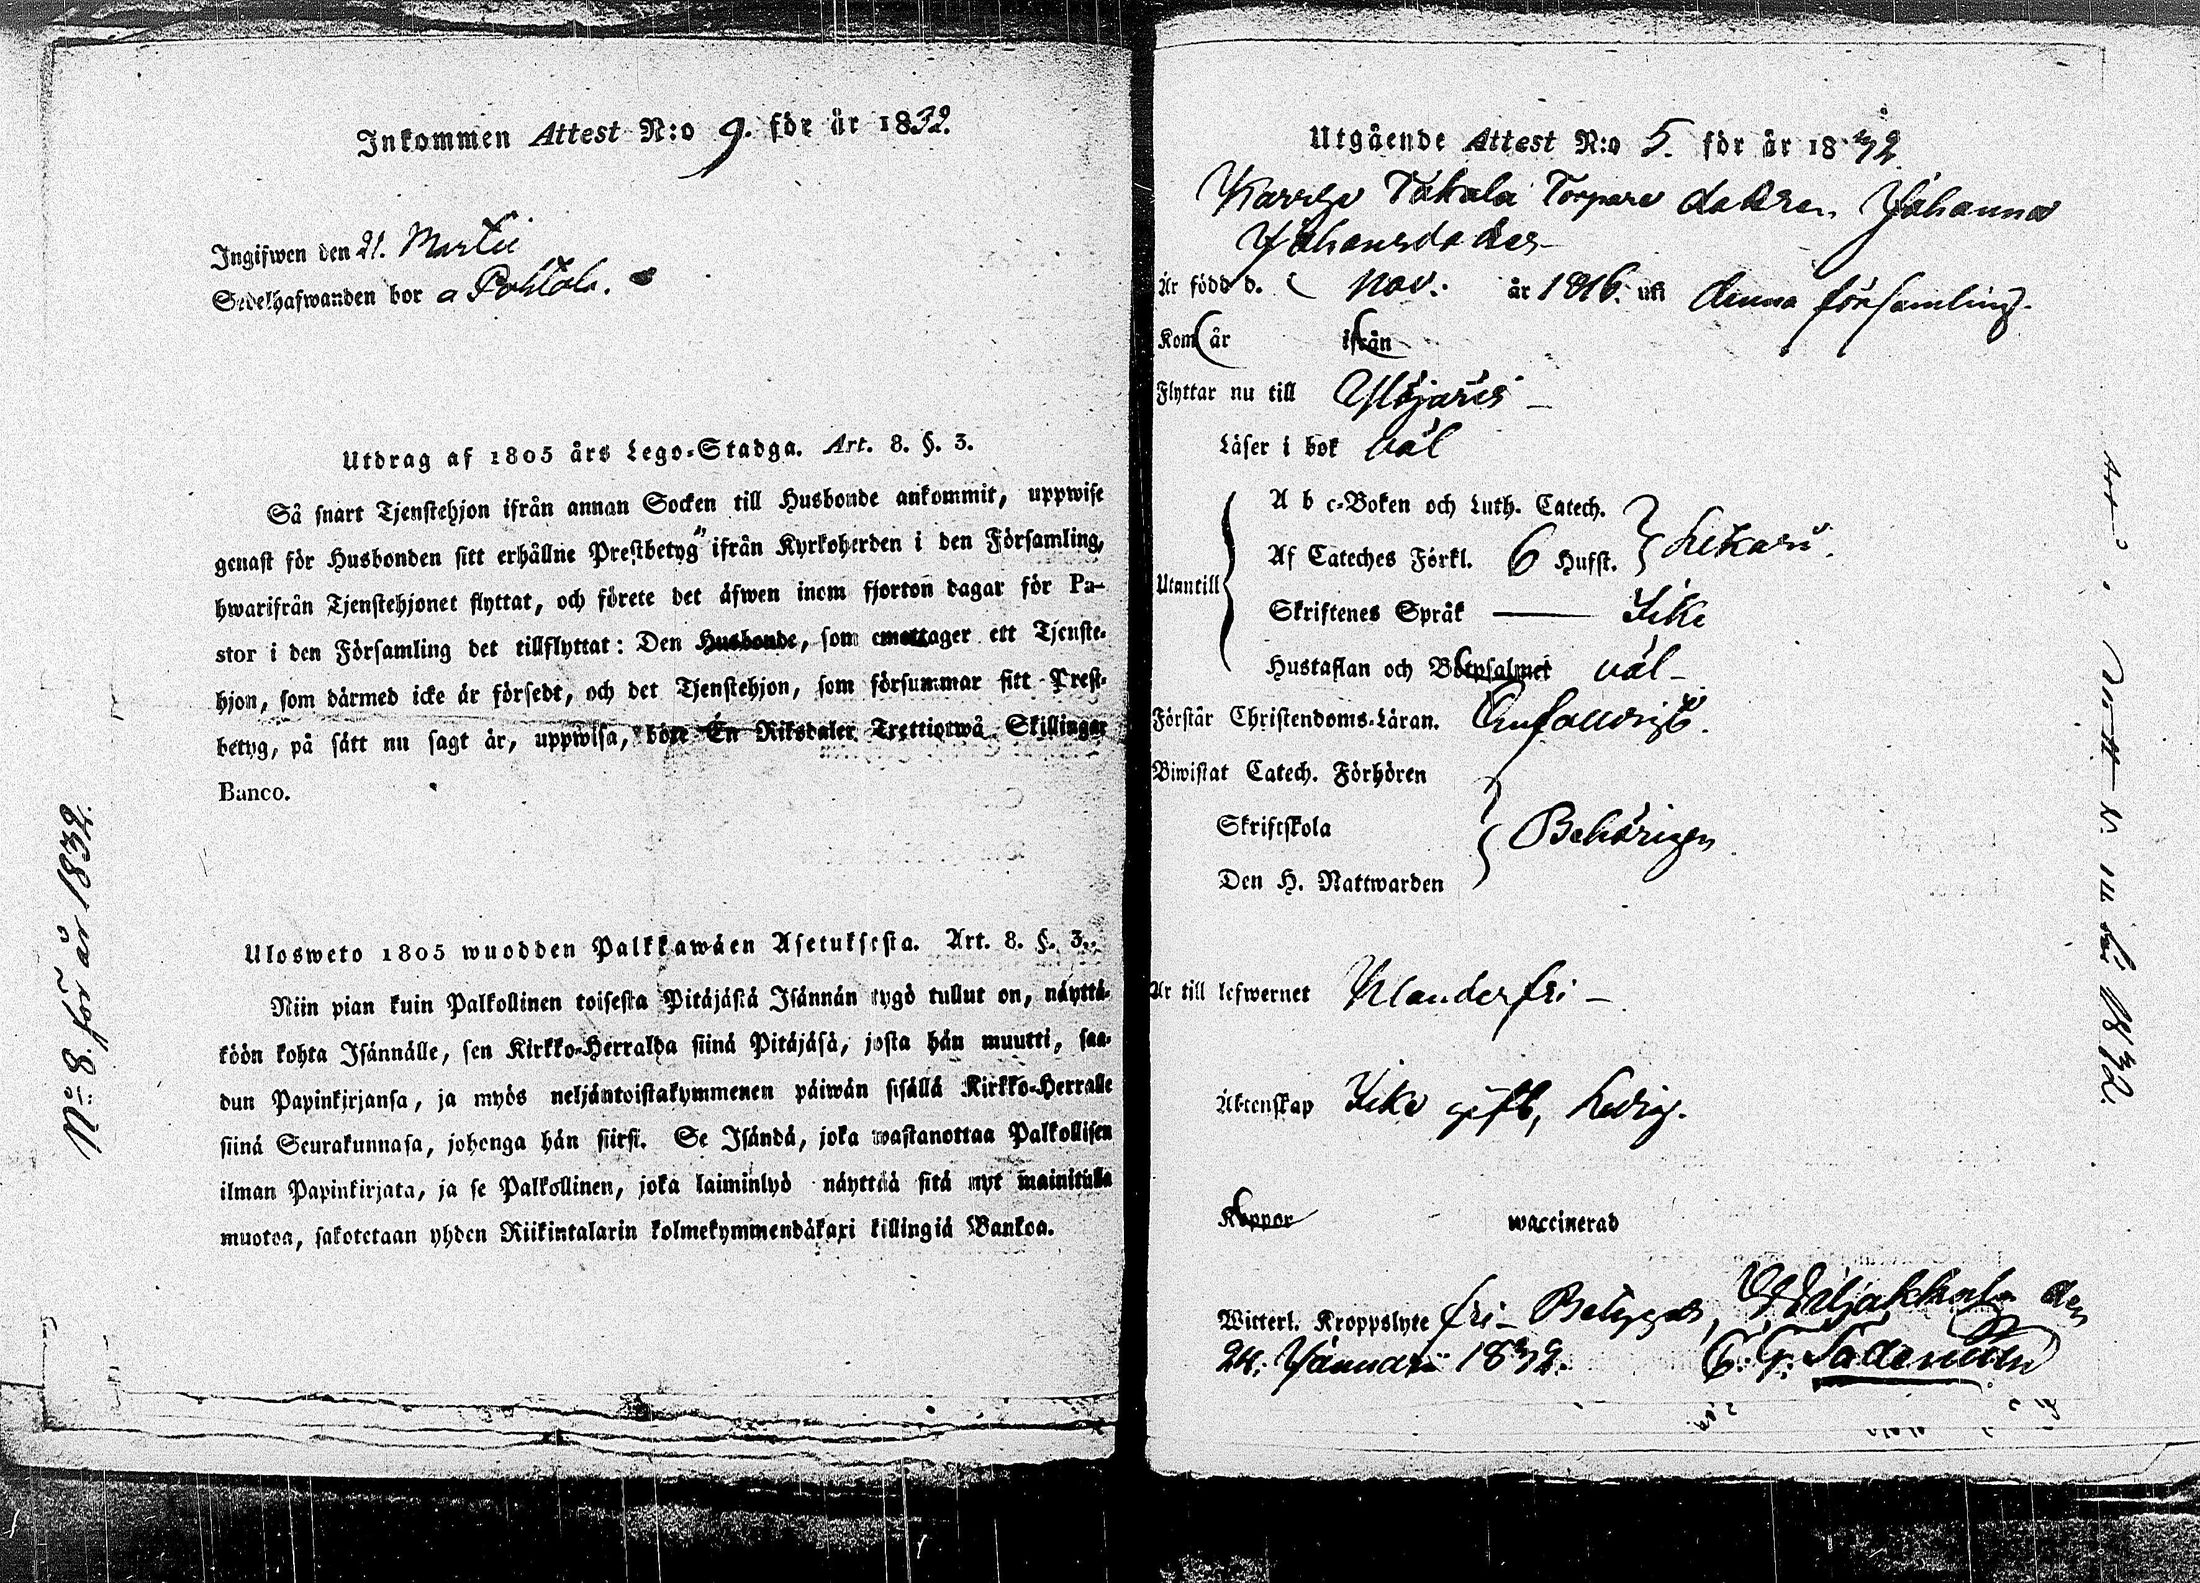 Inkommen Attest N:o 9. för år 1832.
Ingifwen den 21. Martii
Sedelhafwanden bor a Pohtola.
Utdrag af 1805 års Lego-Stadga. Art. 8. §. 3.
Så snart Tjenstehjon ifrån annan Socken till Husbonde ankommit, uppwise
genast för Husbonden sitt erhållne Prestbetyg ifrån Kyrkoherden i den Församling,
hwarifrån Tjenstehjonet flyttat, och förete det äfwen inom fjorton dagar för Pa-
stor i den Församling det tillflyttat: Den Husbonde, som emottager ett Tjenste-
hjon, som därmed icke är försedt, och det Tjenstehjon, som försummar sitt Prest-
betyg, på sätt nu sagt är, uppwisa, böte En Riksdaler Trettiotwå Skillingar
Banco.
Ulosweto 1805 wuodden Palkkawäen Asetuksesta. Art. 8. §. 3.
Niin pian kuin Palkollinen toisesta Pitäjästä Isännän tygö tullut on, näyttä-
köön kohta Isännälle, sen Kirkko-Herralda siinä Pitäjäsä, josta hän muutti, saa-
dun Papinkirjansa, ja myös neljäntoistakymmenen päiwän sisällä Kirkko-Herralle
siinä Seurakunnasa, johonga hän siirsi. Se Isändä, joka wastanottaa Palkollisen
ilman Papinkirjata, ja se Palkollinen, joka laiminlyö näyttää sitä nyt mainitulla
muotoa, sakotetaan yhden Riikintalarin kolmekymmendäkaxi killingiä Bankoa.
No: 8. för år 1832.
Utgående Attest N:o 5. för år 1832
Takala Torpare dottren Johanna
Johansdotter
Är född d. Nov. år 1816. uti denna församling.
Kom år ifrån
Flyttar nu till Ylöjärvi
Läser i bok väl
Utantill
A b c-Boken och Luth. Catech.
Af Cateches Förkl. 6 Hufst. Likaså.
Skriftenes Språk Icke
Hustaflan och Botpsalmer väl
Förstår Christendoms-Läran. Enfalldigt.
Biwistat Catech. Förhören
Skriftskola Behörigen
Den H. Nattwarden
Är till lefwernet Klanderfri
Äktenskap Icke gift, ledig.
Koppor waccinerad
Witterl. Kroppslyte fri Betygas, Wiljakkala den
24. Januari 1832.